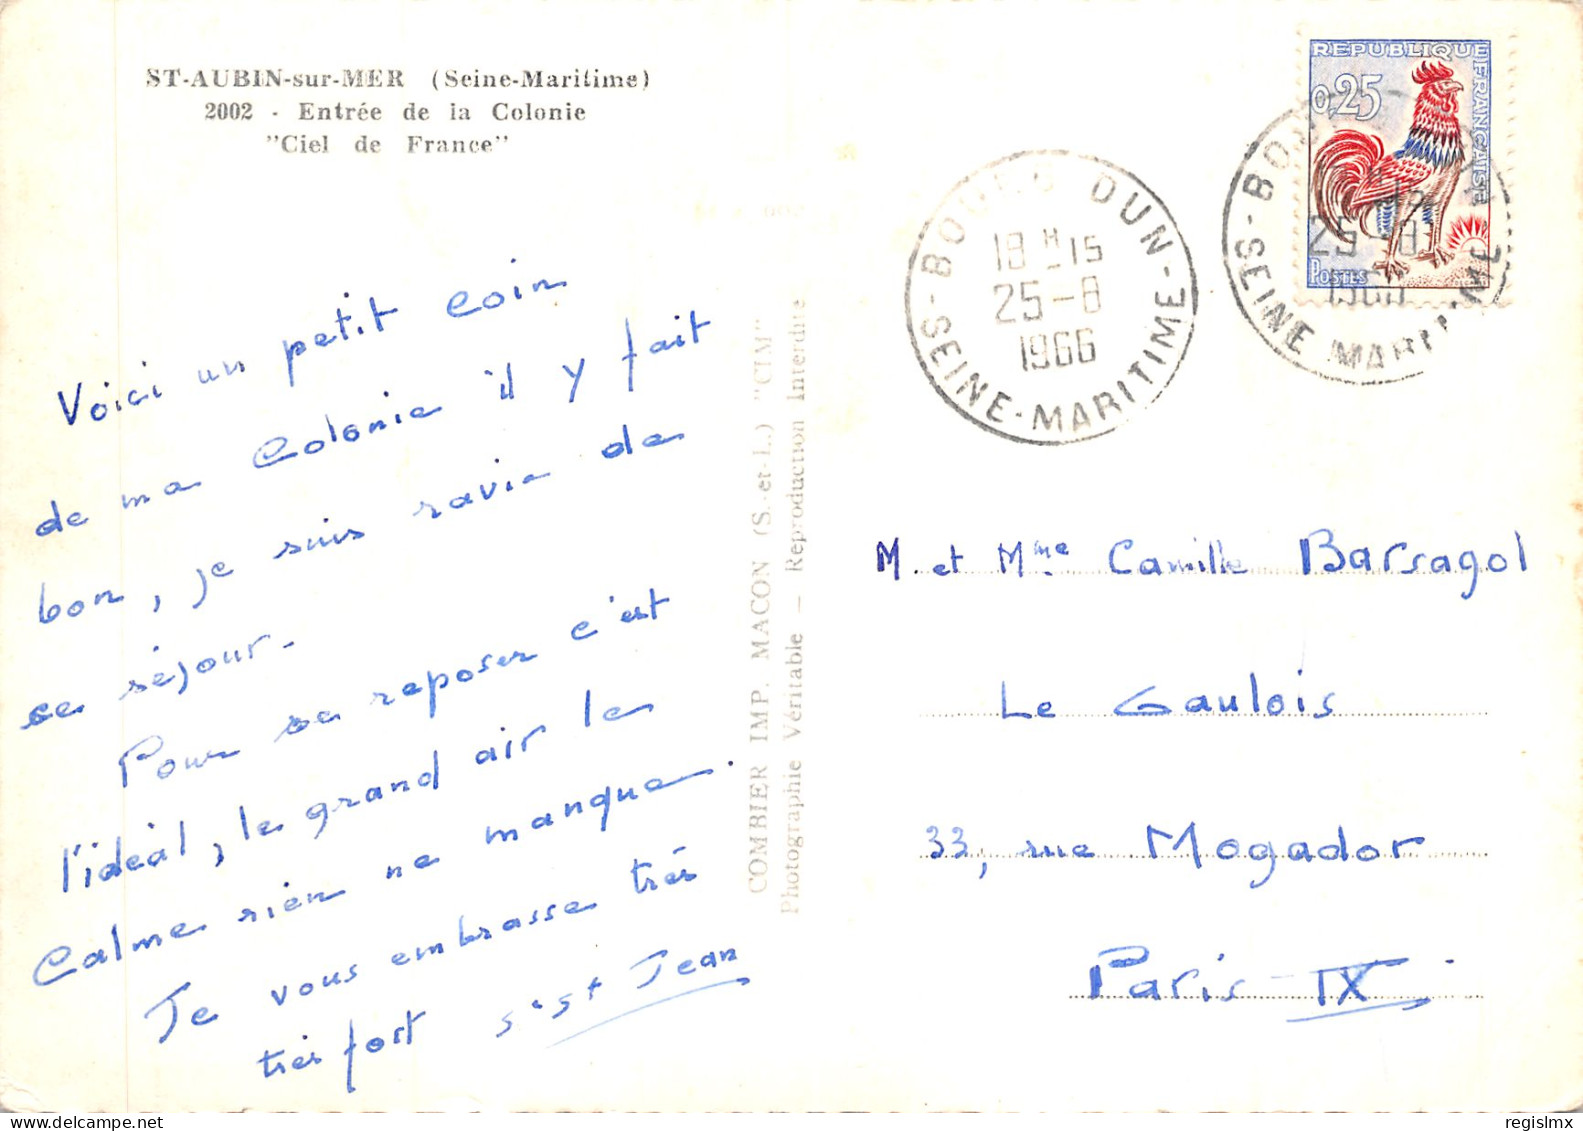 ST-AUBIN-sur-MER (Seine-Maritime)
2002 - Entrée de la Colonie
"Ciel de France"
Voici un petit coin
de ma Colonie il y fait
bon, je suis ravie de
ce séjour.
Pour se reposer c'est
l'idéal, le grand air le
Calme rien ne manque.
Je vous embrasse très
très fort st Jean
COMBIER IMP. MACON (S.-et-L.) "CIM"
Photographie Véritable — Reproduction Interdite
REPUBLIQUE FRANÇAISE
0,25
POSTES
BOURG DUN
18 H 15
25-8
1966
SEINE-MARITIME
25-8
1966
SEINE MARITIME
M. et Mme Camille Barsagol
Le Gaulois
33, rue Mogador
Paris IX
regislmx
delcampe.net